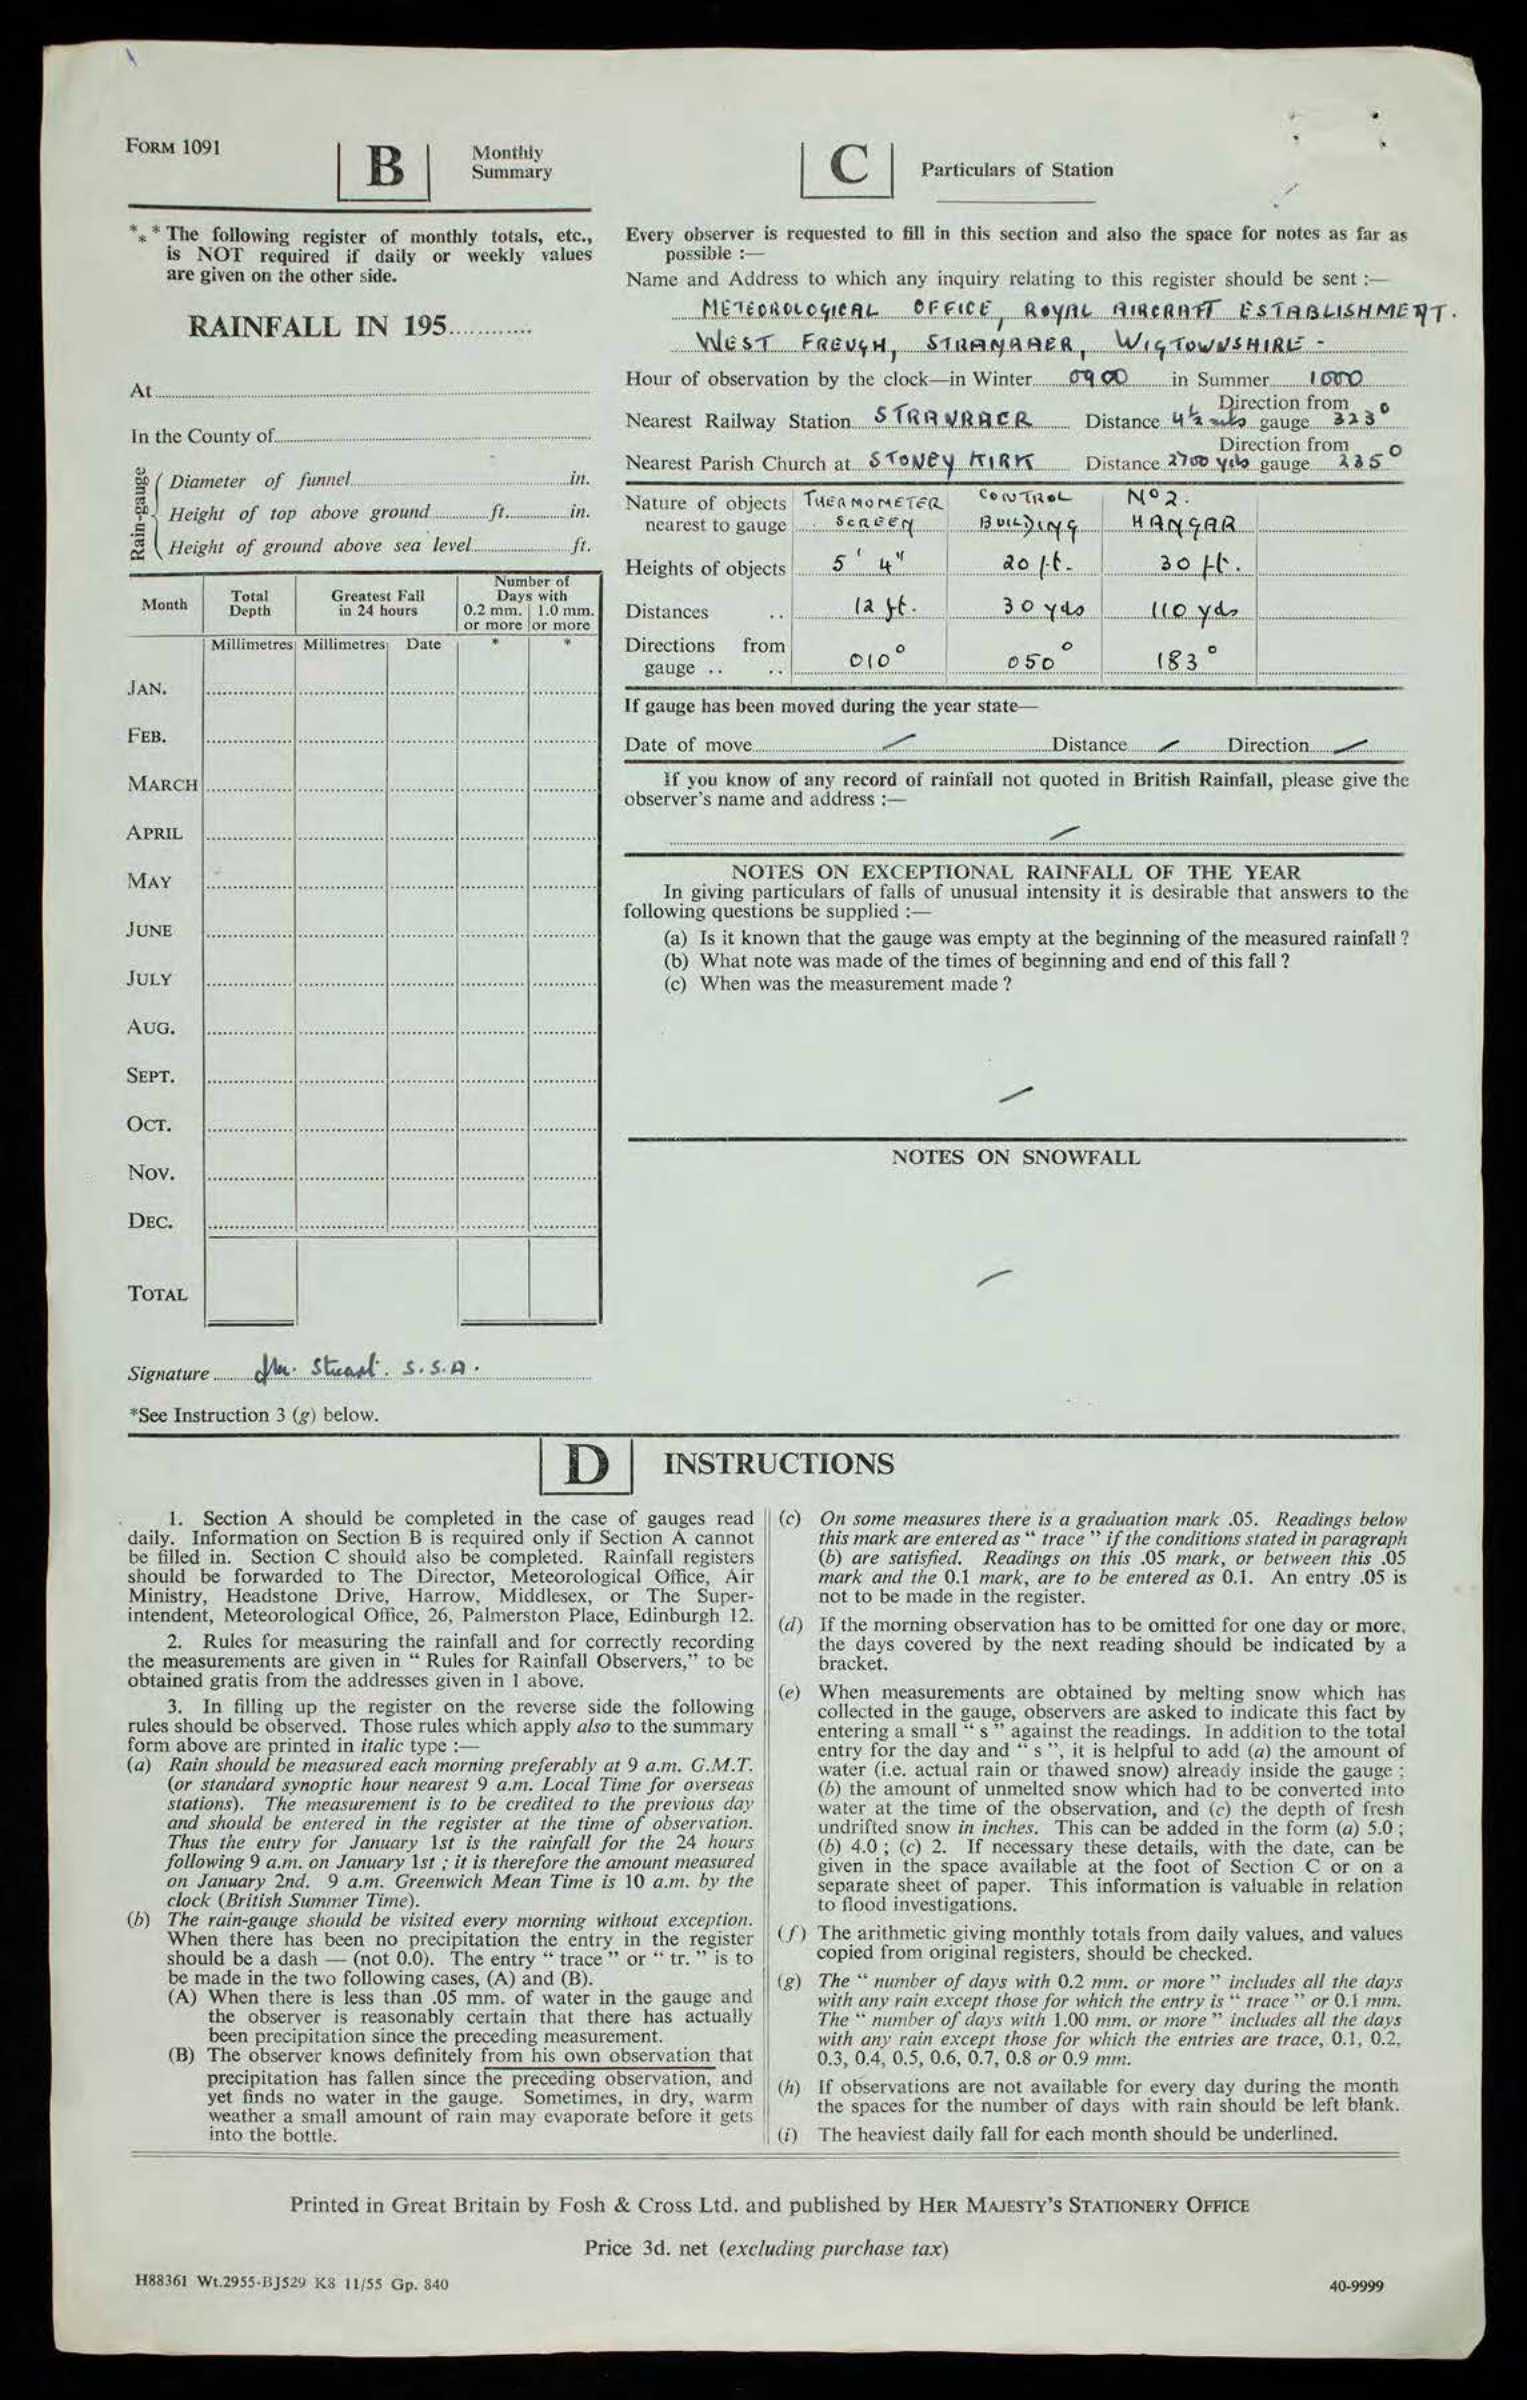 FORM 1091
B
Monthly
Summary
*** The following register of monthly totals, etc.,
is NOT required if daily or weekly values
are given on the other side.
RAINFALL IN 195............
At
In the County of
Rain-gauge
Diameter of funnel in.
Height of top above ground ft. in.
Height of ground above sea level ft.
Month
Total Depth
Greatest Fall in 24 hours
Number of Days with
0.2 mm. or more
1.0 mm. or more
Millimetres Millimetres Date * *
JAN.
FEB.
MARCH
APRIL
MAY
JUNE
JULY
AUG.
SEPT.
OCT.
NOV.
DEC.
TOTAL
Signature Jm. Stuart. S.S.A.
*See Instruction 3 (g) below.
C
Particulars of Station
Every observer is requested to fill in this section and also the space for notes as far as
possible :—
Name and Address to which any inquiry relating to this register should be sent :—
METEOROLOGICAL OFFICE, ROYAL AIRCRAFT ESTABLISHMENT.
WEST FREUGH, STRANRAER, WIGTOWNSHIRE -
Hour of observation by the clock—in Winter 0900 in Summer 1000
Nearest Railway Station STRANRAER Distance 4½ mls Direction from gauge 323°
Nearest Parish Church at STONEY KIRK Distance 2700 yds Direction from gauge 235°
Nature of objects nearest to gauge THERMOMETER SCREEN CONTROL BUILDING Nº 2. HANGAR
Heights of objects 5' 4" 20 ft. 30 ft.
Distances .. 12 ft. 30 yds 110 yds
Directions from gauge .. .. 010° 050° 183°
If gauge has been moved during the year state—
Date of move / Distance / Direction /
If you know of any record of rainfall not quoted in British Rainfall, please give the
observer's name and address :—
/
NOTES ON EXCEPTIONAL RAINFALL OF THE YEAR
In giving particulars of falls of unusual intensity it is desirable that answers to the
following questions be supplied :—
(a) Is it known that the gauge was empty at the beginning of the measured rainfall ?
(b) What note was made of the times of beginning and end of this fall ?
(c) When was the measurement made ?
/
NOTES ON SNOWFALL
/
D
INSTRUCTIONS
1. Section A should be completed in the case of gauges read
daily. Information on Section B is required only if Section A cannot
be filled in. Section C should also be completed. Rainfall registers
should be forwarded to The Director, Meteorological Office, Air
Ministry, Headstone Drive, Harrow, Middlesex, or The Super-
intendent, Meteorological Office, 26, Palmerston Place, Edinburgh 12.
2. Rules for measuring the rainfall and for correctly recording
the measurements are given in “ Rules for Rainfall Observers,” to be
obtained gratis from the addresses given in 1 above.
3. In filling up the register on the reverse side the following
rules should be observed. Those rules which apply also to the summary
form above are printed in italic type :—
(a) Rain should be measured each morning preferably at 9 a.m. G.M.T.
(or standard synoptic hour nearest 9 a.m. Local Time for overseas
stations). The measurement is to be credited to the previous day
and should be entered in the register at the time of observation.
Thus the entry for January 1st is the rainfall for the 24 hours
following 9 a.m. on January 1st ; it is therefore the amount measured
on January 2nd. 9 a.m. Greenwich Mean Time is 10 a.m. by the
clock (British Summer Time).
(b) The rain-gauge should be visited every morning without exception.
When there has been no precipitation the entry in the register
should be a dash — (not 0.0). The entry “ trace ” or “ tr. ” is to
be made in the two following cases, (A) and (B).
(A) When there is less than .05 mm. of water in the gauge and
the observer is reasonably certain that there has actually
been precipitation since the preceding measurement.
(B) The observer knows definitely from his own observation that
precipitation has fallen since the preceding observation, and
yet finds no water in the gauge. Sometimes, in dry, warm
weather a small amount of rain may evaporate before it gets
into the bottle.
(c) On some measures there is a graduation mark .05. Readings below
this mark are entered as “ trace ” if the conditions stated in paragraph
(b) are satisfied. Readings on this .05 mark, or between this .05
mark and the 0.1 mark, are to be entered as 0.1. An entry .05 is
not to be made in the register.
(d) If the morning observation has to be omitted for one day or more,
the days covered by the next reading should be indicated by a
bracket.
(e) When measurements are obtained by melting snow which has
collected in the gauge, observers are asked to indicate this fact by
entering a small “ s ” against the readings. In addition to the total
entry for the day and “ s ”, it is helpful to add (a) the amount of
water (i.e. actual rain or thawed snow) already inside the gauge ;
(b) the amount of unmelted snow which had to be converted into
water at the time of the observation, and (c) the depth of fresh
undrifted snow in inches. This can be added in the form (a) 5.0 ;
(b) 4.0 ; (c) 2. If necessary these details, with the date, can be
given in the space available at the foot of Section C or on a
separate sheet of paper. This information is valuable in relation
to flood investigations.
(f) The arithmetic giving monthly totals from daily values, and values
copied from original registers, should be checked.
(g) The “ number of days with 0.2 mm. or more ” includes all the days
with any rain except those for which the entry is “ trace ” or 0.1 mm.
The “ number of days with 1.00 mm. or more ” includes all the days
with any rain except those for which the entries are trace, 0.1, 0.2,
0.3, 0.4, 0.5, 0.6, 0.7, 0.8 or 0.9 mm.
(h) If observations are not available for every day during the month
the spaces for the number of days with rain should be left blank.
(i) The heaviest daily fall for each month should be underlined.
Printed in Great Britain by Fosh & Cross Ltd. and published by HER MAJESTY'S STATIONERY OFFICE
Price 3d. net (excluding purchase tax)
H88361 Wt.2955-BJ529 K8 11/55 Gp. 840
40-9999